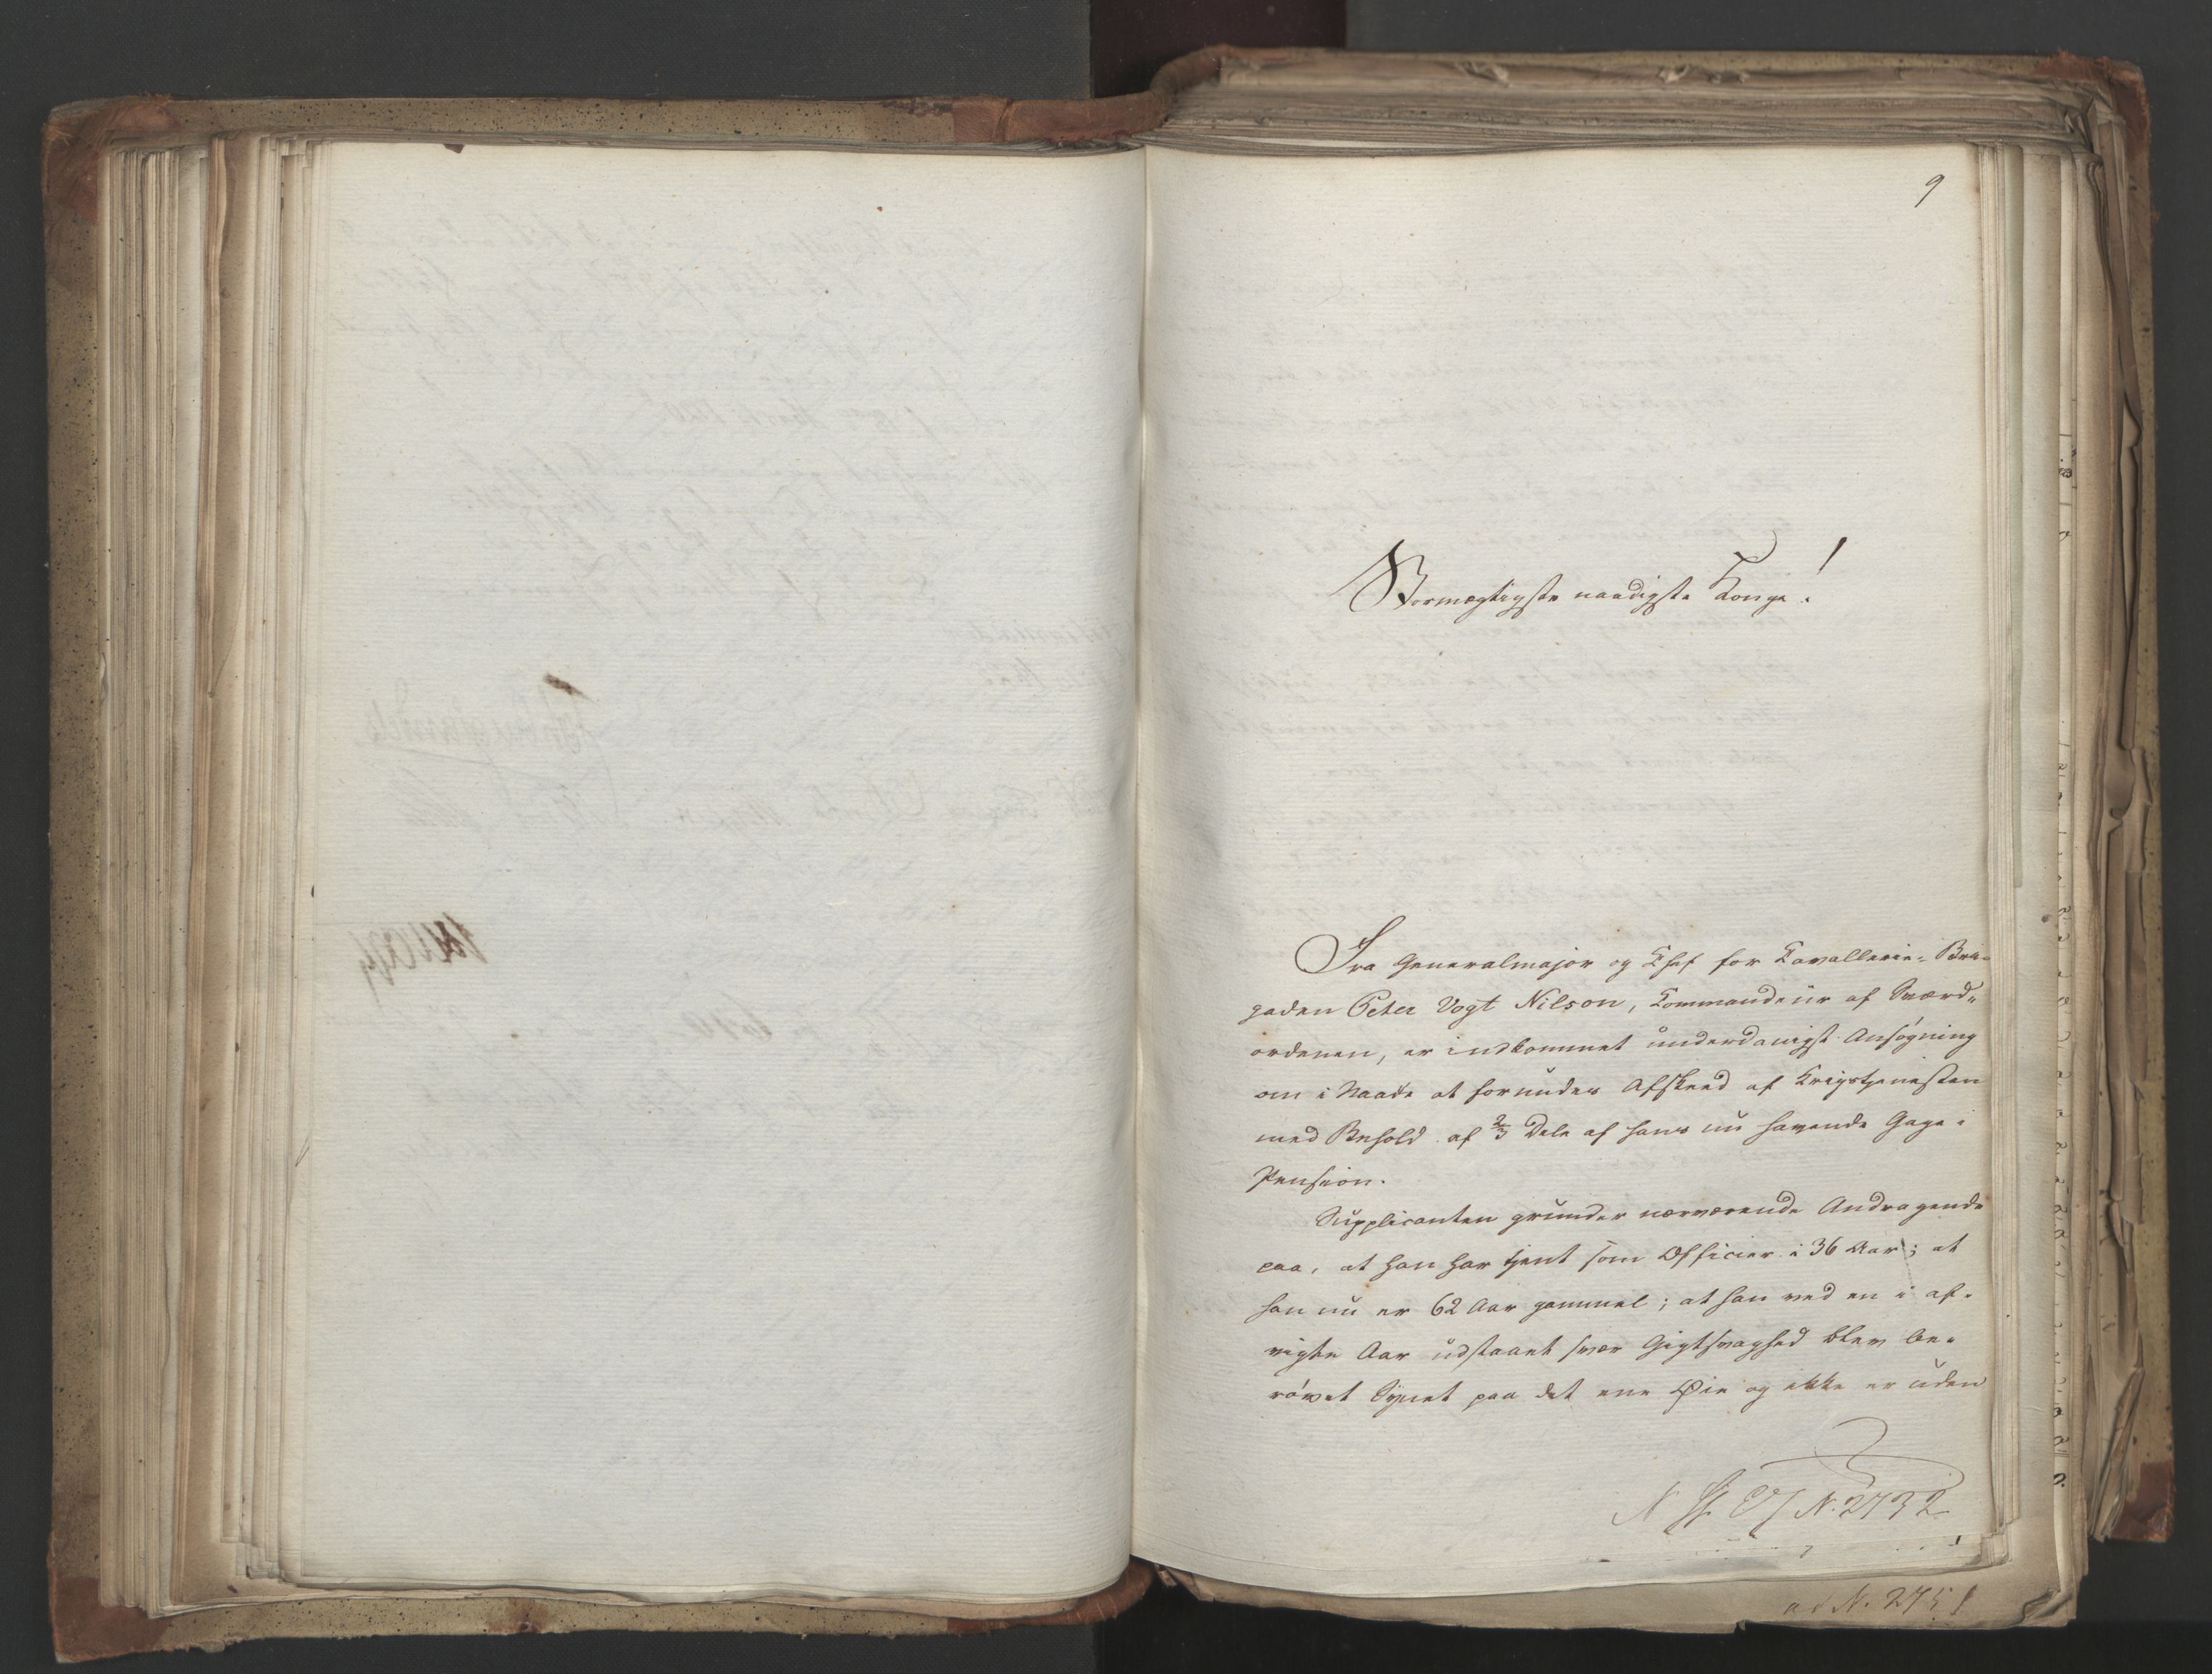 9
Stormægtigste naadigste Konge!
Fra Generalmajor og Chef for Cavallerie-Bri-
gaden Peter Vogt Nilson, Commandeur af Sværd-
ordenen, er indkommet underdanigst Ansøgning
om i Naade at forundes Afskeed af Krigstjenesten
med Behold af 2/3 Dele af hans nu havende Gage i
Pension.
Supplicanten grunder nærværende Andragende
paa, at han har tjent som Officier i 36 Aar; at
han nu er 62 Aar gammel; at han ved en i af-
vigte Aar udstaaet svær Gigtsvaghed blev be-
røvet Synet paa det ene Øie og ikke er uden
N. 2732
ad N. 2751